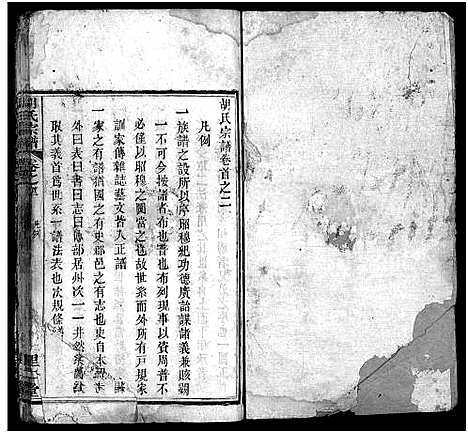 胡氏宗譜卷首之二
凡例
一族譜之設所以序昭穆紀功德廣詒謀諸義兼賅觀
不一可今按譜者布也普也布列現事以資周普不
僅以昭穆之圖當之也故世系而外所有戶規家
訓家傳雜誌藝文皆入正譜
一家之有譜猶國之有史郡邑之有志也史自本紀
外曰表曰書曰志曰傳部居州次一一井然
取其義首爲世系一譜法表也次規條
胡氏宗譜
卷首之二
凡例